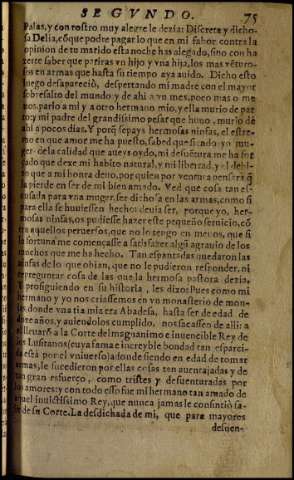 SEGVNDO. 75
Palas, y con rostro muy alegre le dezia: Discreta y dicho-
sa Delia, cõ que podre pagar lo que en mi fabor contra la
opinion de tu marido esta noche has alegado, sino con ha
zerte saber que pariras vn hijo y vna hija, los mas vẽturo-
sos en armas que hasta su tiempo aya auido. Dicho esto
luego desaparecio, despertando mi madre con el mayor
sobresalto del mundo: y de ahi a vn mes, poco mas o me
nos, pario a mi y a otro hermano mio, y ella murio de par
to: y mi padre del grandissimo pesar que huuo, murio de
ahi a pocos dias. Y porq̃ sepays hermosas ninfas, el estre-
mo en que amor me ha puesto, sabed que siendo yo mu-
ger de la calidad que aueys oydo, mi desuẽtura me ha for
çado que dexe mi habito natural, y mi libertad, y el debi-
to que a mi honra deuo, por quien por ventura pensara q̃
la pierde en ser de mi bien amado. Ved que cosa tan es-
cusada para vna muger, ser dichosa en las armas, como si
para ella se huuiessen hecho: deuia ser, porque yo, her-
mosas ninfas, os pudiesse hazer este pequeño seruicio, cõ
tra aquellos peruersos, que no le tengo en menos, que si
la fortuna me començasse a satisfazer algũ agrauio de los
muchos que me ha hecho. Tan espantadas quedaron las
ninfas de lo que oian, que no le pudieron responder, ni
repreguntar cosa de las que la hermosa pastora dezia.
Y prosiguiendo en su historia, les dixo: Pues como mi
hermano y yo nos criassemos en vn monasterio de mon-
jas donde vna tia mia era Abadesa, hasta ser de edad de
doze años, y auiendolos cumplido, nos sacassen de alli: a
el lleuarõ a la Corte del magnanimo e inuencible Rey de
los Lusitanos (cuya fama e increyble bondad tan esparzi-
da està por el vniuerso) adonde siendo en edad de tomar
armas, le sucedieron por ellas cosas tan auentajadas y de
tan gran esfuerço, como tristes y desuenturadas por
los amores, y con todo esso fue mi hermano tan amado de
aquel inuictissimo Rey, que nunca jamas le consintiò sa-
lir de su Corte. La desdichada de mi, que para mayores
desuen-